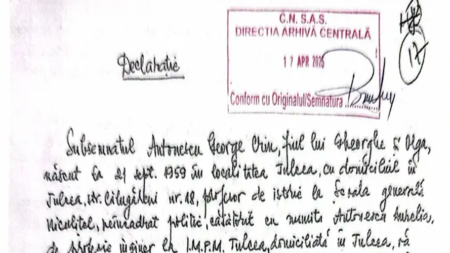 C.N. S.A.S.
DIRECTIA ARHIVĂ CENTRALĂ
17 APR 2025
Conform cu Originalul/Semnatura
17
Declarație
Subsemnatul Antonescu George Crin, fiul lui Gheorghe și Olga,
născut la 21 sept. 1959 în localitatea Tulcea, cu domiciliul în
Tulcea, str. Călugăreni nr. 18, profesor de istorie la Școala generală
Niculițel, neîncadrat politic, căsătorit cu numita Antonescu Aurelia,
de profesie inginer la I.M.P.M. Tulcea, domiciliată în Tulcea,